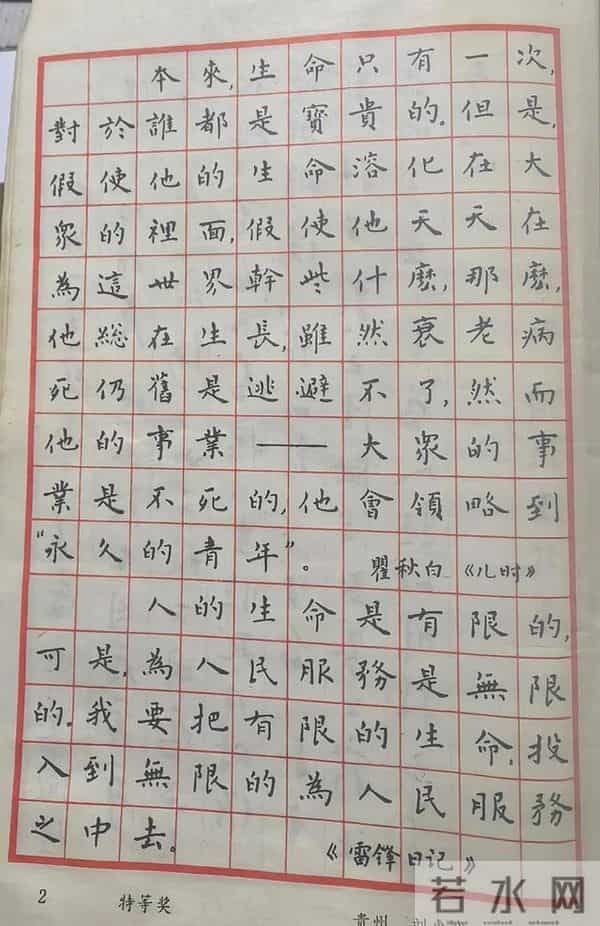 本來,生命只有一次,
對於誰都是寶貴的.但是,
假使他的生命溶化在大
眾的裡面,假使他天天在
為這世界幹些什麼,那麼,
他總在生長,雖然衰老病
死仍舊是逃避不了,然而
他的事業——大眾的事
業是不死的,他會領略到
“永久的青年”。 瞿秋白《儿时》
人的生命是有限的,
可是,為人民服務是無限
的.我要把有限的生命,投
入到無限的為人民服務
之中去.
《雷锋日记》
2 特等奖
贵州
若水网